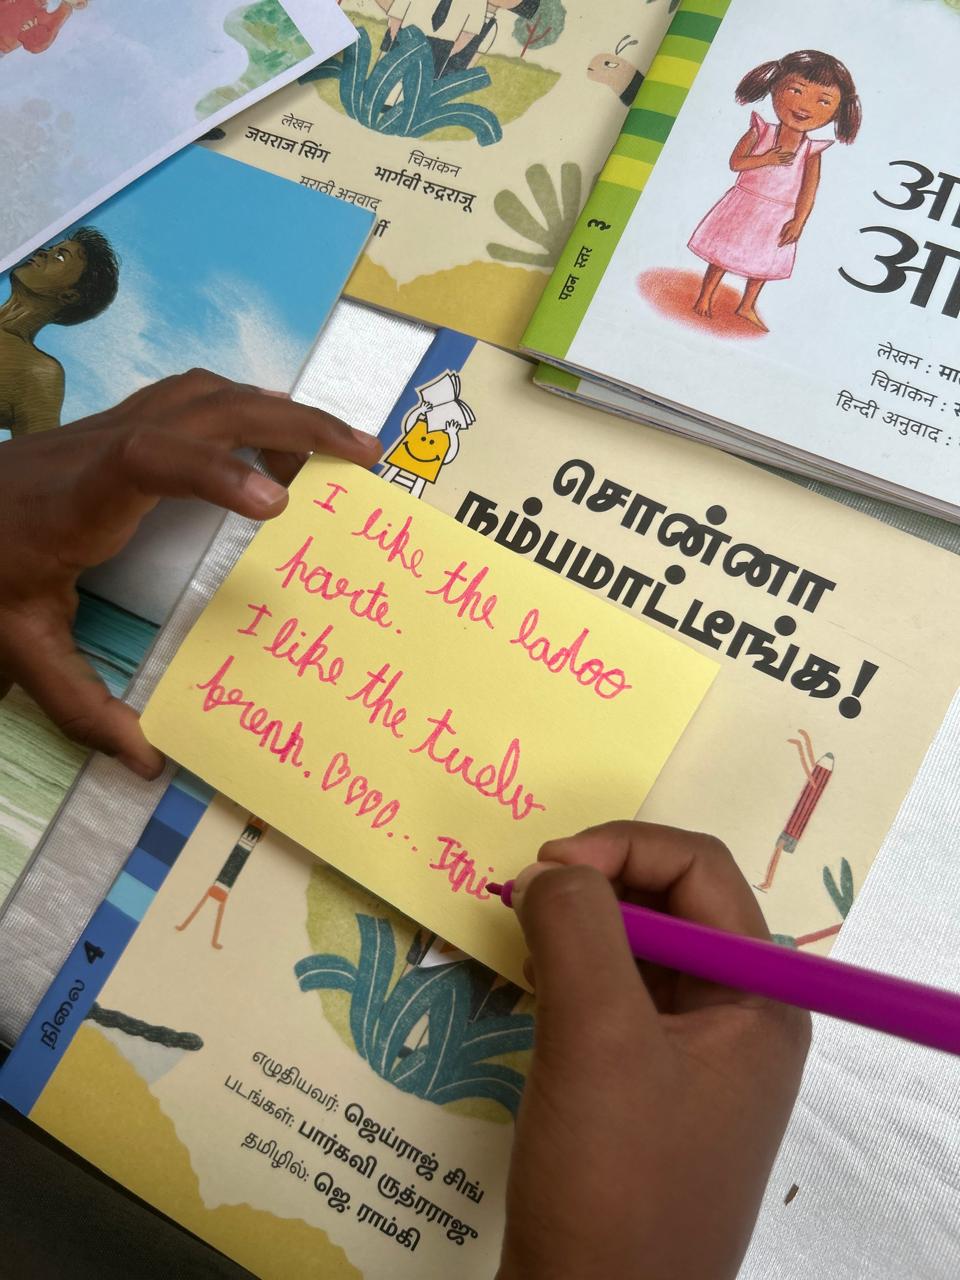 लेखन
जयराज सिंग
चित्रांकन
भार्गवी रुद्रराजू
मराठी अनुवाद
पठन स्तर ३
लेखन :
चित्रांकन :
हिन्दी अनुवाद :
சொன்னா
நம்பமாட்டீங்க!
I like the ladoo
parte.
I like the tuelv
brenh. ♡♡♡♡...
Ithi
நிலை 4
எழுதியவர்: ஜெய்ராஜ் சிங்
படங்கள்: பார்கவி ருத்ரராஜு
தமிழில்: ஜெ. ராம்கி